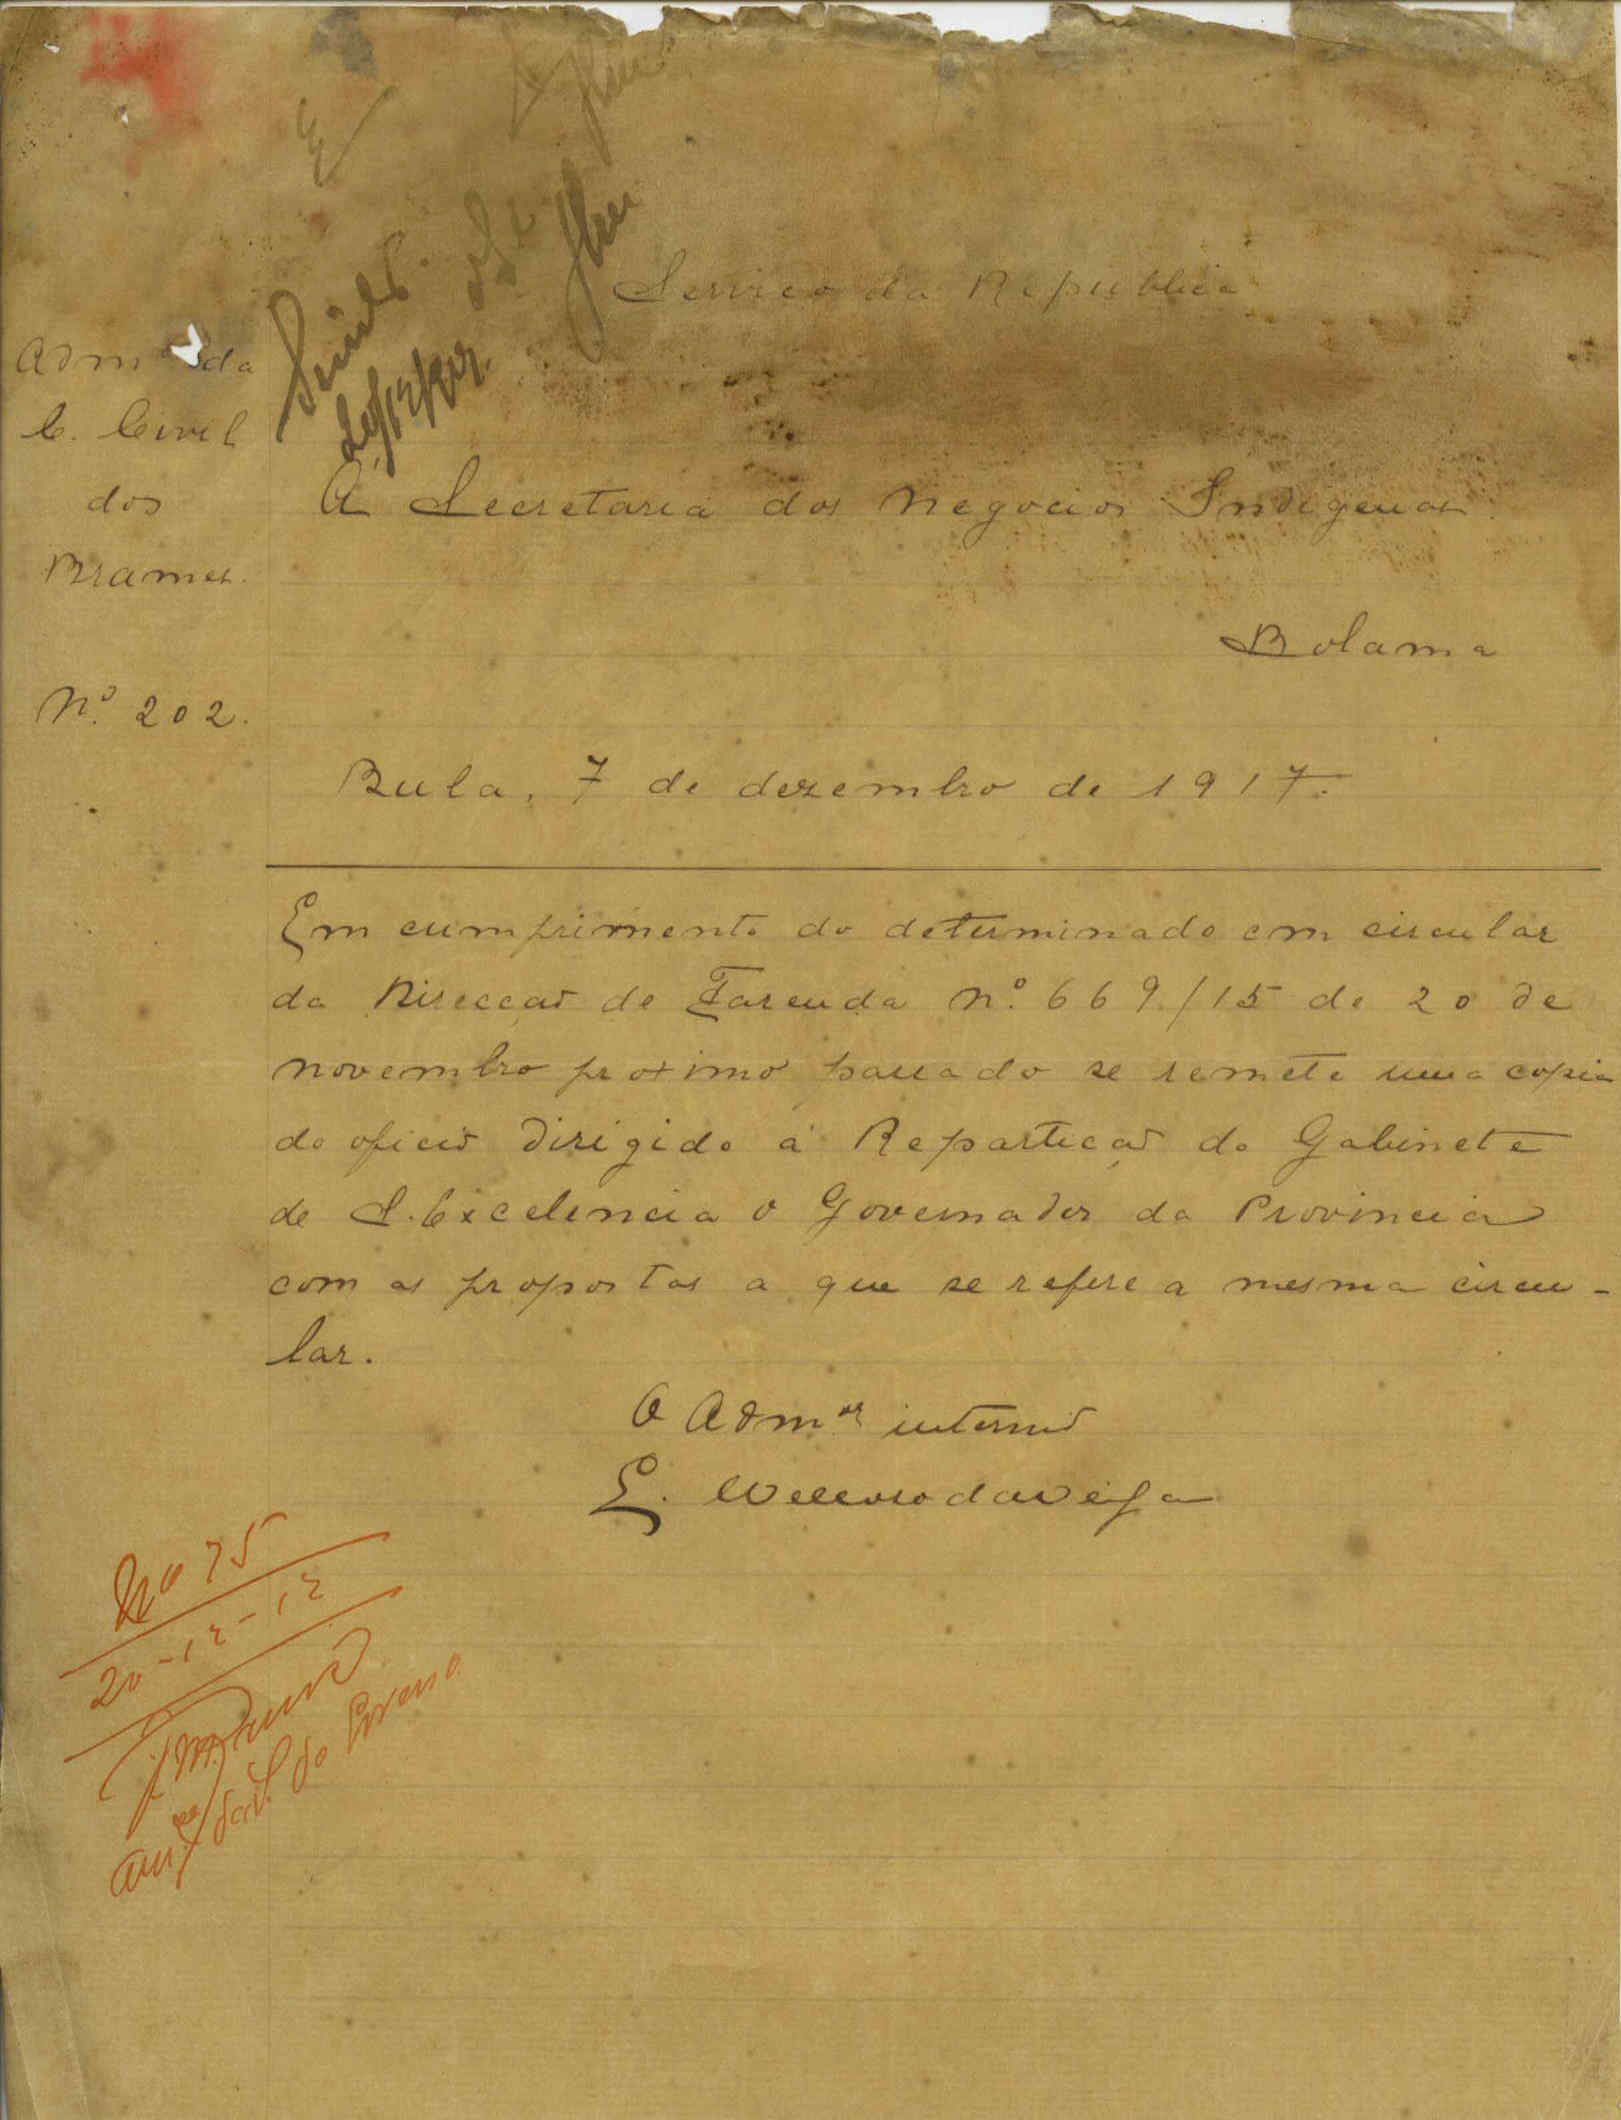 Serviço da Republica
Adm da
C. Civil
dos
Brames.
Nº 202.
20/12/917.
Á Secretaria dos Negocios Indigenas
Bolama
Bula, 7 de dezembro de 1917.
Em cumprimento do determinado em circular
da Direcção de Fazenda Nº 669/15 de 20 de
novembro proximo passado se remete uma copia
do oficio dirigido á Repartição do Gabinete
de S. Excelencia o Governador da Provincia
com as propostas a que se refere a mesma circu-
lar.
O Admor interino
E. Velloso da Veiga
Nº 75
20-12-17